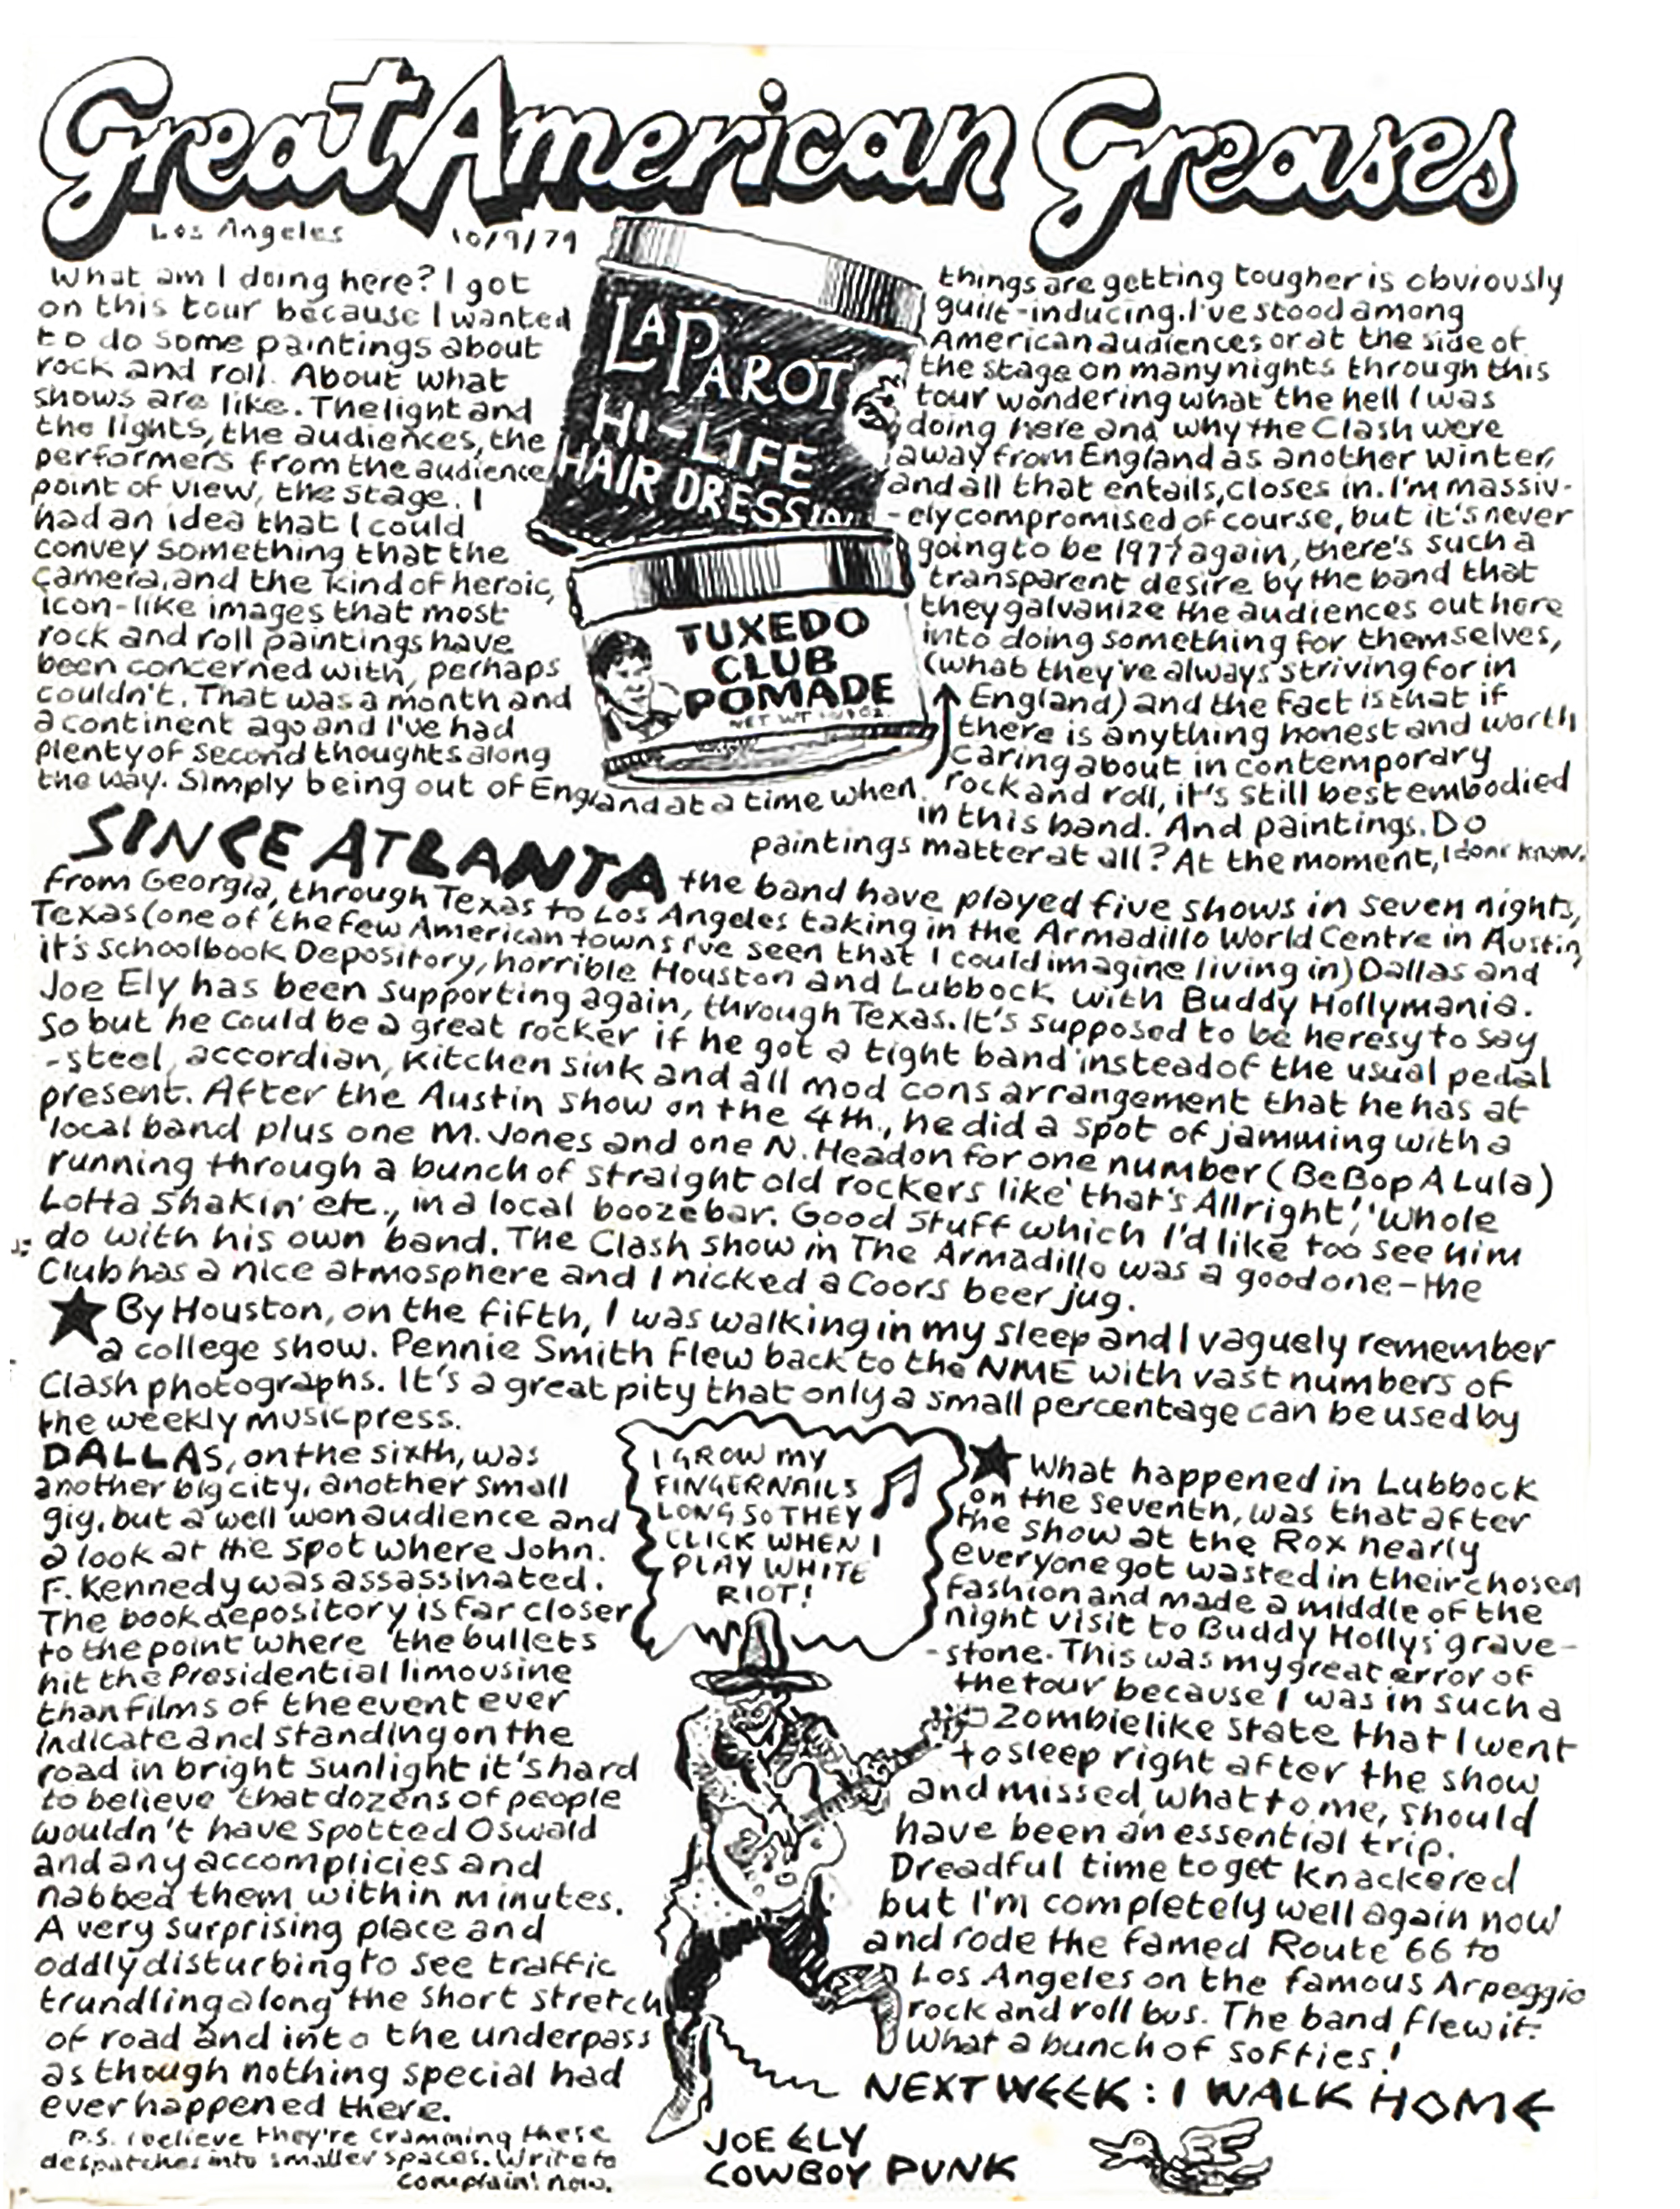 Great American Greases
Los Angeles 10/9/79
What am I doing here? I got
on this tour because I wanted
to do some paintings about
rock and roll. About what
shows are like. The light and
the lights, the audiences, the
performers from the audience
point of view, the stage. I
had an idea that I could
convey something that the
camera, and the kind of heroic,
icon-like images that most
rock and roll paintings have
been concerned with, perhaps
couldn't. That was a month and
a continent ago and I've had
plenty of second thoughts along
the way. Simply being out of England at a time when
LA PAROT
HI-LIFE
HAIR DRESSING
TUXEDO
CLUB
POMADE
NET WT
things are getting tougher is obviously
guilt-inducing. I've stood among
American audiences or at the side of
the stage on many nights through this
tour wondering what the hell I was
doing here and why the Clash were
away from England as another winter,
and all that entails, closes in. I'm massiv-
-ely compromised of course, but it's never
going to be 1977 again, there's such a
transparent desire by the band that
they galvanize the audiences out here
into doing something for themselves,
(what they're always striving for in
England) and the fact is that if
there is anything honest and worth
caring about in contemporary
rock and roll, it's still best embodied
in this band. And paintings. Do
paintings matter at all? At the moment, I dont know.
SINCE ATLANTA the band have played five shows in seven nights,
from Georgia, through Texas to Los Angeles taking in the Armadillo World Centre in Austin,
Texas (one of the few American towns I've seen that I could imagine living in) Dallas and
it's schoolbook Depository, horrible Houston and Lubbock with Buddy Hollymania.
Joe Ely has been supporting again, through Texas. It's supposed to be heresy to say
so but he could be a great rocker if he got a tight band instead of the usual pedal
-steel, accordian, kitchen sink and all mod cons arrangement that he has at
present. After the Austin show on the 4th., he did a spot of jamming with a
local band plus one M. Jones and one N. Headon for one number (BeBop A Lula)
running through a bunch of straight old rockers like 'that's Allright', 'Whole
Lotta Shakin' etc., in a local booze bar. Good stuff which I'd like too see him
do with his own band. The Clash show in The Armadillo was a good one - the
Club has a nice atmosphere and I nicked a Coors beer jug.
★ By Houston, on the fifth, I was walking in my sleep and I vaguely remember
a college show. Pennie Smith flew back to the NME with vast numbers of
Clash photographs. It's a great pity that only a small percentage can be used by
the weekly music press.
DALLAS, on the sixth, was
another big city, another small
gig, but a well won audience and
a look at the spot where John.
F. Kennedy was assassinated.
The book depository is far closer
to the point where the bullets
hit the Presidential limousine
than films of the event ever
indicate and standing on the
road in bright sunlight it's hard
to believe that dozens of people
wouldn't have spotted Oswald
and any accomplicies and
nabbed them within minutes.
A very surprising place and
oddly disturbing to see traffic
trundling along the short stretch
of road and into the underpass
as though nothing special had
ever happened there.
P.S. I believe they're cramming these
despatches into smaller spaces. Write to
complain! now.
I GROW MY
FINGERNAILS
LONG SO THEY
CLICK WHEN I
PLAY WHITE
RIOT!
★ What happened in Lubbock
on the seventh, was that after
the show at the Rox nearly
everyone got wasted in their chosen
fashion and made a middle of the
night visit to Buddy Hollys' grave-
-stone. This was my great error of
the tour because I was in such a
Zombielike state that I went
to sleep right after the show
and missed, what to me, should
have been an essential trip.
Dreadful time to get knackered
but I'm completely well again now
and rode the famed Route 66 to
Los Angeles on the famous Arpeggio
rock and roll bus. The band flew it.
What a bunch of softies!
NEXT WEEK: I WALK HOME
JOE ELY
COWBOY PUNK